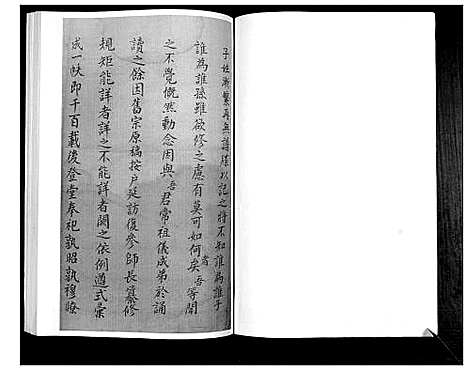 子姓漸繁再無譜牒以記之將不知誰為誰子
誰為誰孫雖欲修之慮有莫可如何矣者吾等聞
之不覺慨然動念因與吾君常祖儀成弟於誦
讀之餘因舊宗原稿按戶延訪復參師長纂修
規矩能詳者詳之不能詳者闕之依例遵式彙
成一帙即千百載後登堂奉祀孰昭孰穆瞭